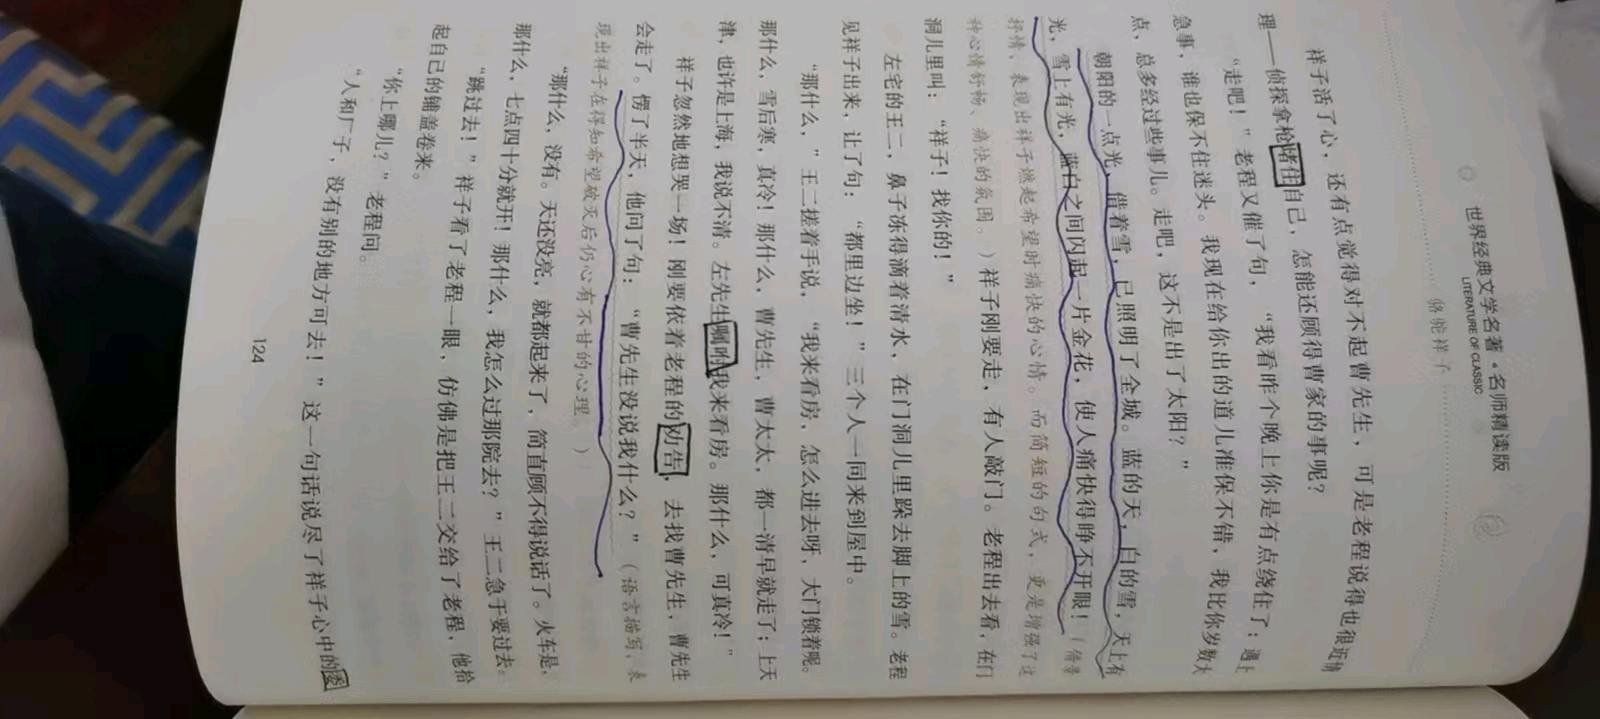 世界经典文学名著·名师精读版
LITERATURE OF CLASSIC
骆驼祥子
祥子活了心，还有点觉得对不起曹先生，可是老程说得也很近情
理——侦探拿枪堵住自己，怎能还顾得曹家的事呢？
“走吧！”老程又催了句，“我看昨个晚上你是有点绕住了；遇上
急事，谁也保不住迷头。我现在给你出的道儿准保不错，我比你岁数大
点，总多经过些事儿。走吧，这不是出了太阳？”
朝阳的一点光，借着雪，已照明了全城。蓝的天，白的雪，天上有
光，雪上有光，蓝白之间闪起一片金花，使人痛快得睁不开眼！（借景
抒情，表现出祥子燃起希望时痛快的心情。而简短的句式，更是增强了这
种心情舒畅、痛快的氛围。）祥子刚要走，有人敲门。老程出去看，在门
洞儿里叫：“祥子！找你的！”
左宅的王二，鼻子冻得滴着清水，在门洞儿里跺去脚上的雪。老程
见祥子出来，让了句：“都里边坐！”三个人一同来到屋中。
“那什么，”王二搓着手说，“我来看房，怎么进去呀，大门锁着呢。
那什么，雪后寒，真冷！那什么，曹先生，曹太太，都一清早就走了；上天
津，也许是上海，我说不清。左先生嘱咐我来看房。那什么，可真冷！”
祥子忽然地想哭一场！刚要依着老程的劝告，去找曹先生，曹先生
会走了。愣了半天，他问了句：“曹先生没说我什么？”（语言描写，表
现出祥子在得知希望破灭后仍心有不甘的心理。）
“那什么，没有。天还没亮，就都起来了，简直顾不得说话了。火车是，
那什么，七点四十分就开！那什么，我怎么过那院去？”王二急于要过去。
“跳过去！”祥子看了老程一眼，仿佛是把王二交给了老程，他拾
起自己的铺盖卷来。
“你上哪儿？”老程问。
“人和厂子，没有别的地方可去！”这一句话说尽了祥子心中的委
124